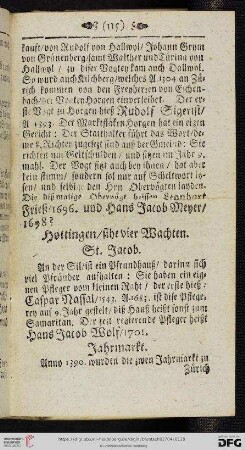 (115)
kaufft/von Rudolf von Hallwyl/Johann Grym
von Grünenberg/samt Walther und Türing von
Hallwyl / zu diser Vogtey kam auch Dallwyl.
So wurd auch Kilchberg/welches A. 1304 an Zü-
rich kommen von den Freyherren von Eschen-
bach/der Vogtey Horgen einverleibet. Der er-
ste Vogt zu Horgen hieß Rudolf Sigerist
A. 1403. Der Marktflecken Horgen hat ein eigen
Gericht: Der Statthalter führt das Wort/de-
me 8. Richter zugesetzt sind auß der Gmeind: Sie
richten um Geltschulden / und setzen im Jahr 9.
mahl. Der Vogt sitzt auch bey ihnen / hat aber
kein stimm/ sondern sol nur auf Scheltwort lo-
sen/ und selbige den Hrn Obervögten laiden.
Die dißmalige Obervögt heissen Leonhart
Frieß/1696. und Hans Jacob Meyer/
1698.
Hottingen/sihe vier Wachten.
St. Jacob.
An der Sil/ist ein Pfrundhauß/ darinn sich
viel Pfründer aufhalten: Sie haben ein eig-
nen Pfleger vom kleinen Raht / der erste hieß:
Caspar Nassal/1543. A. 1683. ist dise Pflege-
rey auf 9. Jahr gestelt/ diß Hauß heißt sonst zum
Samaritan. Der zeit regierende Pfleger heißt
Hans Jacob Wolf/1701.
Jahrmarkt.
Anno 1390. wurden die zwen Jahrmarkt zu
Zürich